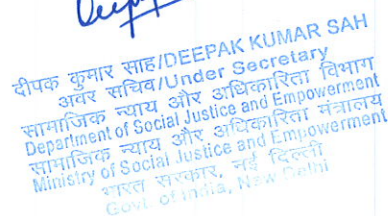 Deep
दीपक कुमार साह/DEEPAK KUMAR SAH
अवर सचिव/Under Secretary
सामाजिक न्याय और अधिकारिता विभाग
Department of Social Justice and Empowerment
सामाजिक न्याय और अधिकारिता मंत्रालय
Ministry of Social Justice and Empowerment
भारत सरकार, नई दिल्ली
Govt. of India, New Delhi